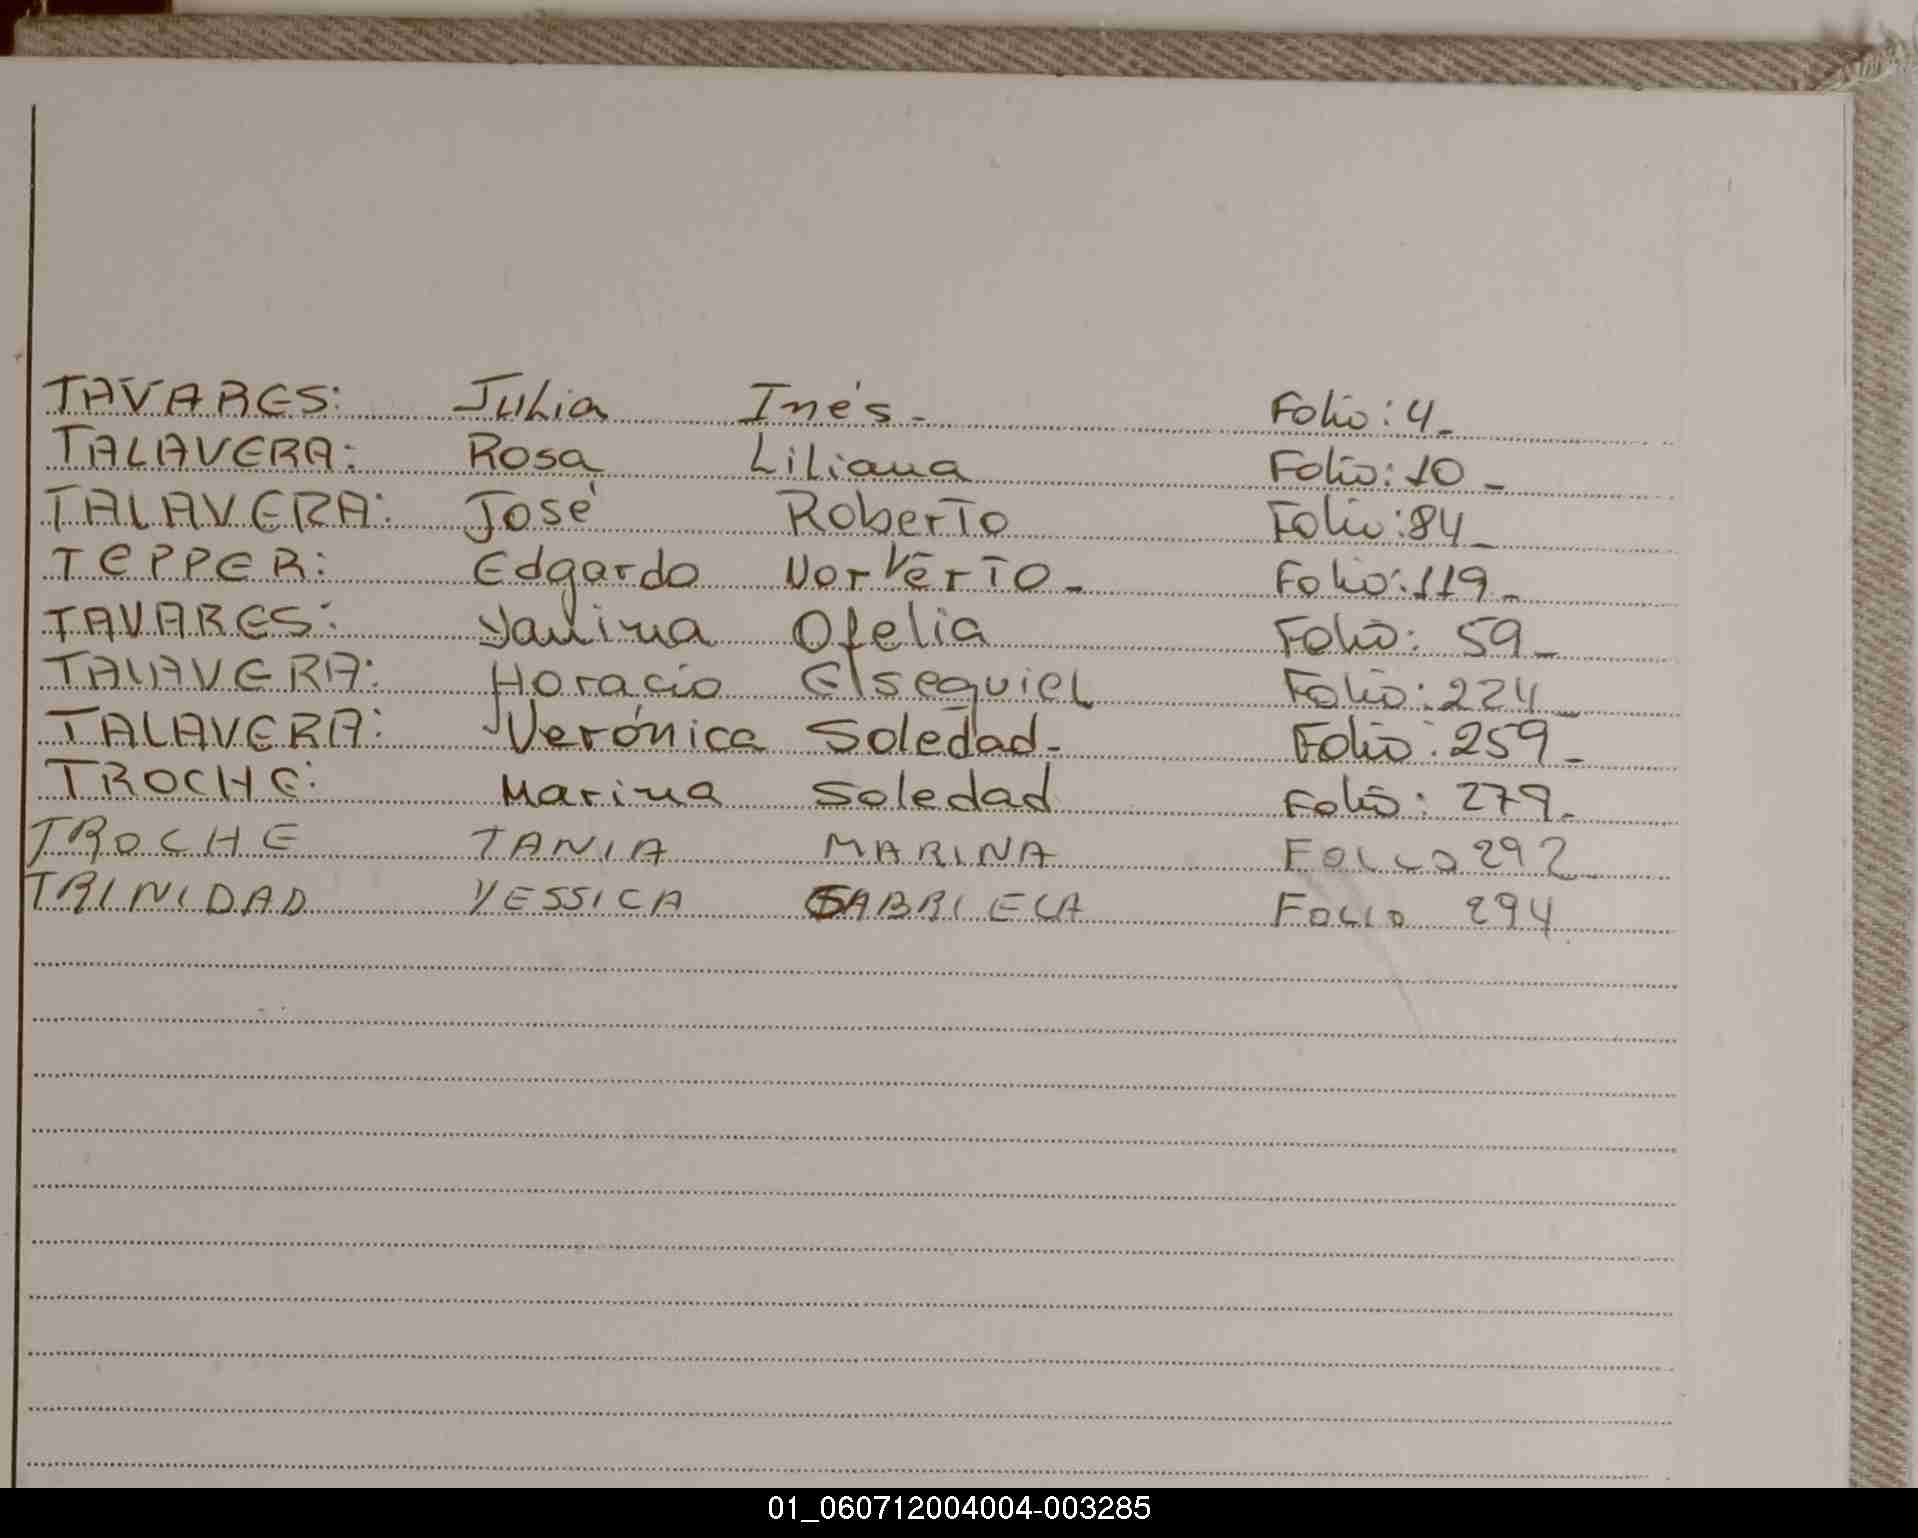 TAVARES: Julia Inés- Folio: 4-
TALAVERA: Rosa Liliana Folio: 10-
TALAVERA: José Roberto Folio: 84-
TEPPER: Edgardo Norverto- Folio: 119-
TAVARES: Yanina Ofelia Folio: 59-
TALAVERA: Horacio Elsequiel Folio: 224-
TALAVERA: Verónica Soledad- Folio: 259-
TROCHE: Marina Soledad Folio: 279-
TROCHE TANIA MARINA FOLIO 292-
TRINIDAD YESSICA GABRIELA FOLIO 294
01_060712004004-003285